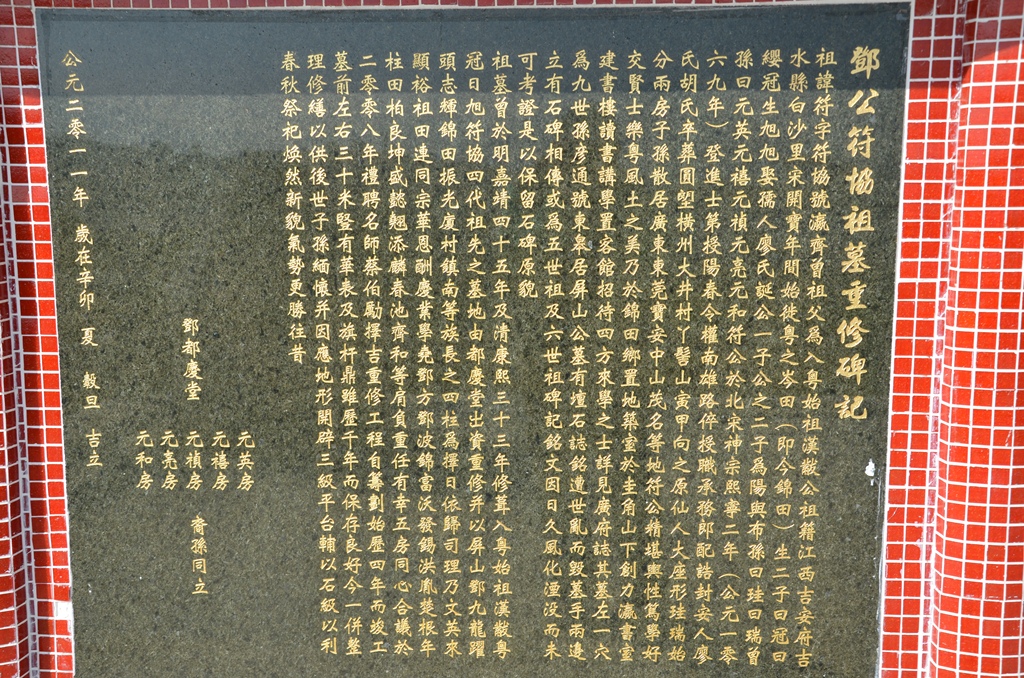 鄧公符協祖墓重修碑記
祖諱符字符協號瀛齊曾祖父為入粵始祖漢黻公祖籍江西吉安府吉
水縣白沙里宋開寶年間始徙粵之岑田（即今錦田）生二子曰冠曰
纓冠生旭旭娶孺人廖氏誕公一子公之二子為陽與布孫曰珪曰瑞曾
孫曰元英元禧元禎元亮元和符公於北宋神宗熙寧二年（公元一零
六九年）登進士第授陽春令權南雄路倅授職承務郎配誥封安人廖
氏胡氏卒葬圓塱橫州大井村丫髻山寅甲向之原仙人大座形珪瑞始
分兩房子孫散居廣東東莞寶安中山茂名等地符公精堪輿性篤學好
交賢士樂粵風土之美乃於錦田鄉置地築室於圭角山下創力瀛書室
建書樓讀書講學置客館招待四方來學之士詳見廣府誌其墓左一穴
為九世孫彥通號東皋居屏山公墓有壇石誌銘遭世亂而毀墓手兩邊
立有石碑相傳或為五世祖及六世祖碑記銘文因日久風化湮沒而未
可考證是以保留石碑原貌
祖墓曾於明嘉靖四十五年及清康熙三十三年修葺入粵始祖漢黻粵
冠日旭符協四代祖先之墓地由都慶堂出資重修并以屏山鄧九龍躍
頭志輝錦田振光廈村鎮南等族長之四柱為擇日依歸司理乃文英來
顯裕祖田連同宗華恩酬慶業學堯鄧方鄧波錦富沃發錫洪胤葵根年
柱田柏良坤盛懿翹添麟春池齊和等肩負重任有幸五房同心合議於
二零零八年禮聘名師蔡伯勵擇吉重修工程自籌劃始歷四年而竣工
墓前左右三十米竪有華表及旗杆鼎雖歷千年而保存良好今一併整
理修繕以供後世子孫緬懷并因應地形開辟三級平台輔以石級以利
春秋祭祀煥然新貌氣勢更勝往昔
鄧都慶堂
元英房
元禧房
元禎房
元亮房
元和房
裔孫同立
公元二零一一年 歲在辛卯 夏 穀旦 吉立